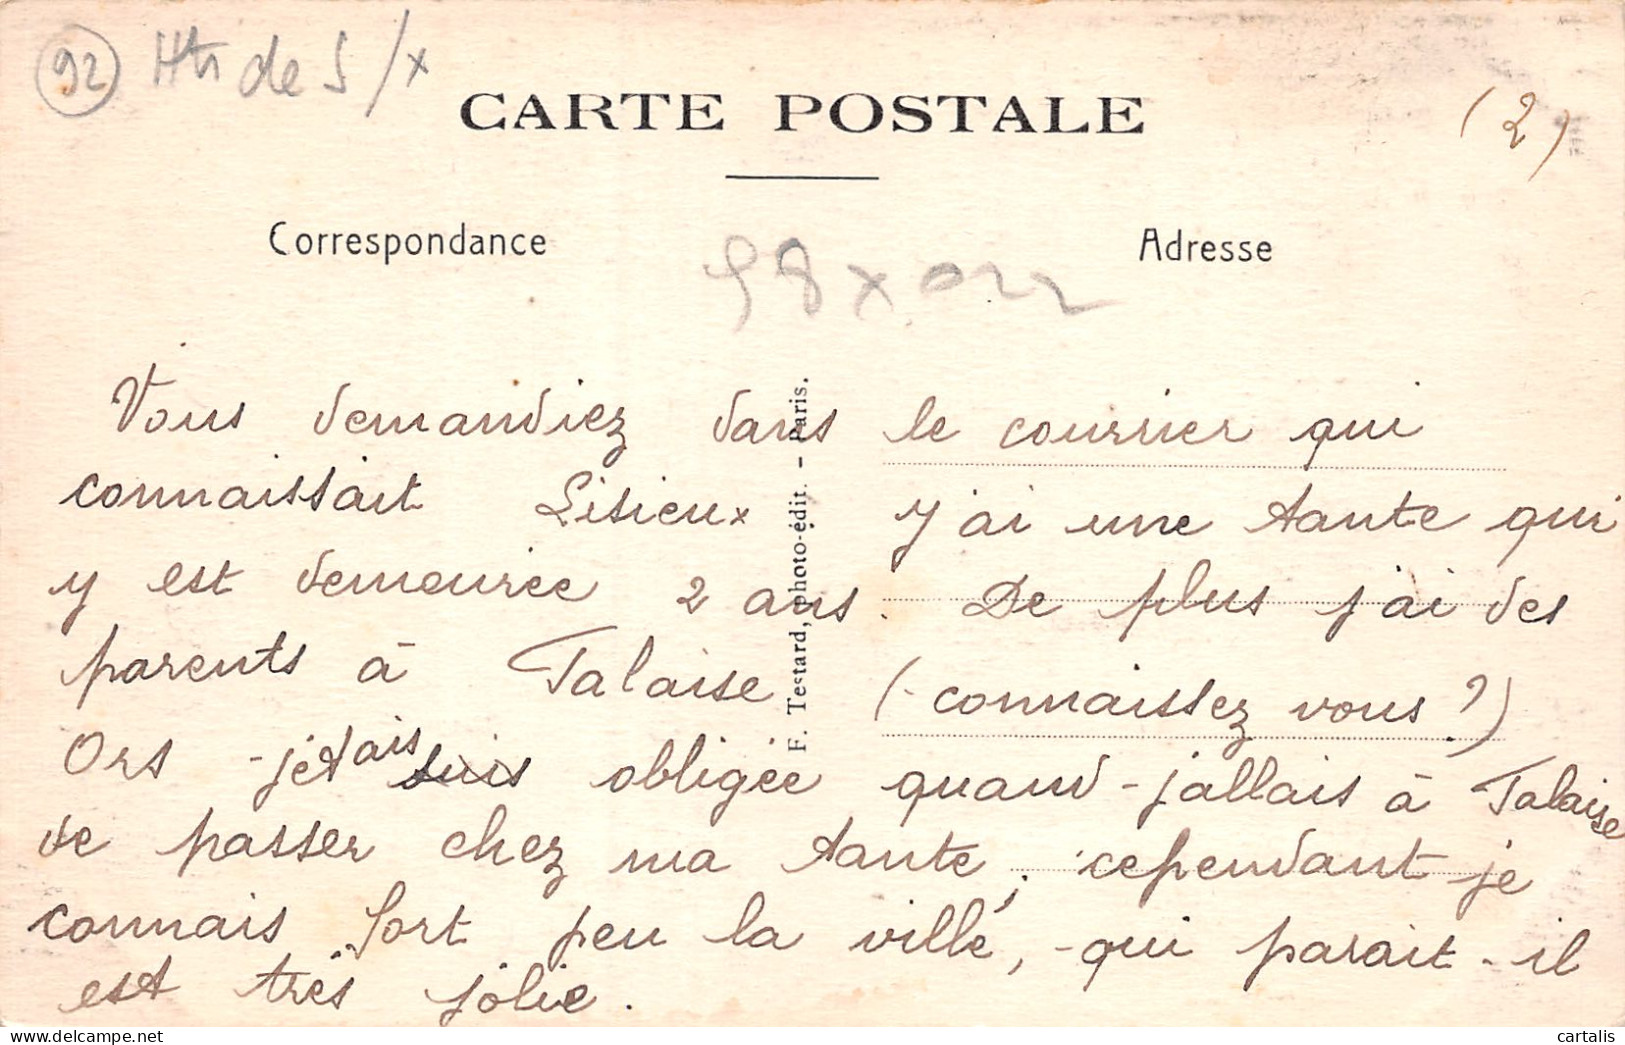 92 Hts de S /x
CARTE POSTALE
(2)
Correspondance
Adresse
F. Testard, photo-édit. - Paris.
Vous demandiez dans le courrier qui
connaissait Lisieux y'ai une tante qui
y est demeurée 2 ans. De plus j'ai des
parents à Falaise (connaissez vous ?)
Ors - jétais suis obligée quand - jallais à Falaise
de passer chez ma tante, cependant je
connais fort peu la ville, - qui parait - il
est très jolie.
cartalis